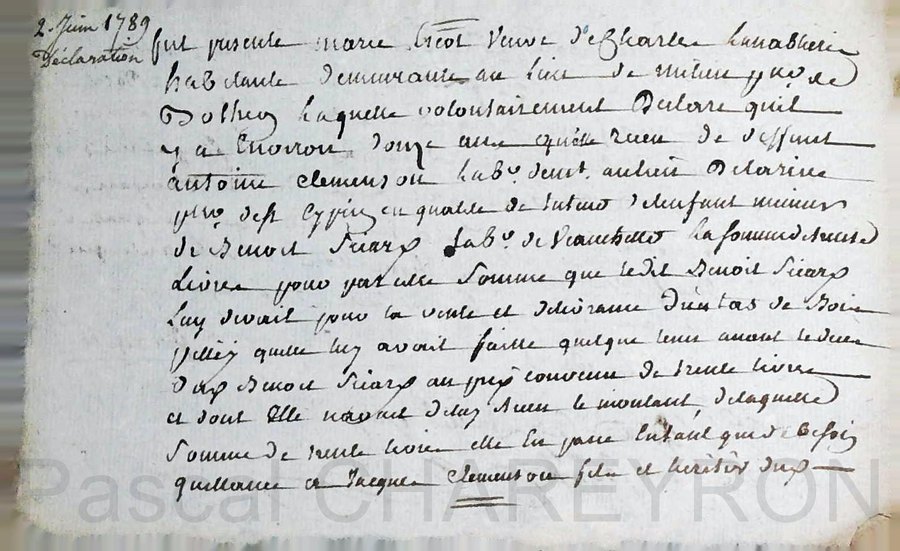 2. Juin 1789
Déclaration
fut presente marie Ve veuve de Charle
habitante demeurante au lieu de milieu
laquelle volontairement Declare quil
y a Environ douze ans quelle recu de deffunt
antoine Clemenson labr. dent.
de St Cyprien en qualité de tuteur d'enfant mineur
de Benoit Sicard labr. de la somme de trente
Livre pour pareille Somme que ledit Benoit Sicard
Luy devait pour la vente et délivrance d'un tas de Bois
quelle luy avait faitte quelque tems avant le déces
dud Benoit Sicard au prix convenu de trente livre
et dont Elle navait deluy recu le montant, delaquelle
Somme de trente livre elle En passe Entant que de Besoin
quittance a Jacque Clemenson fils et heritier dud
Pascal CHAREYRON